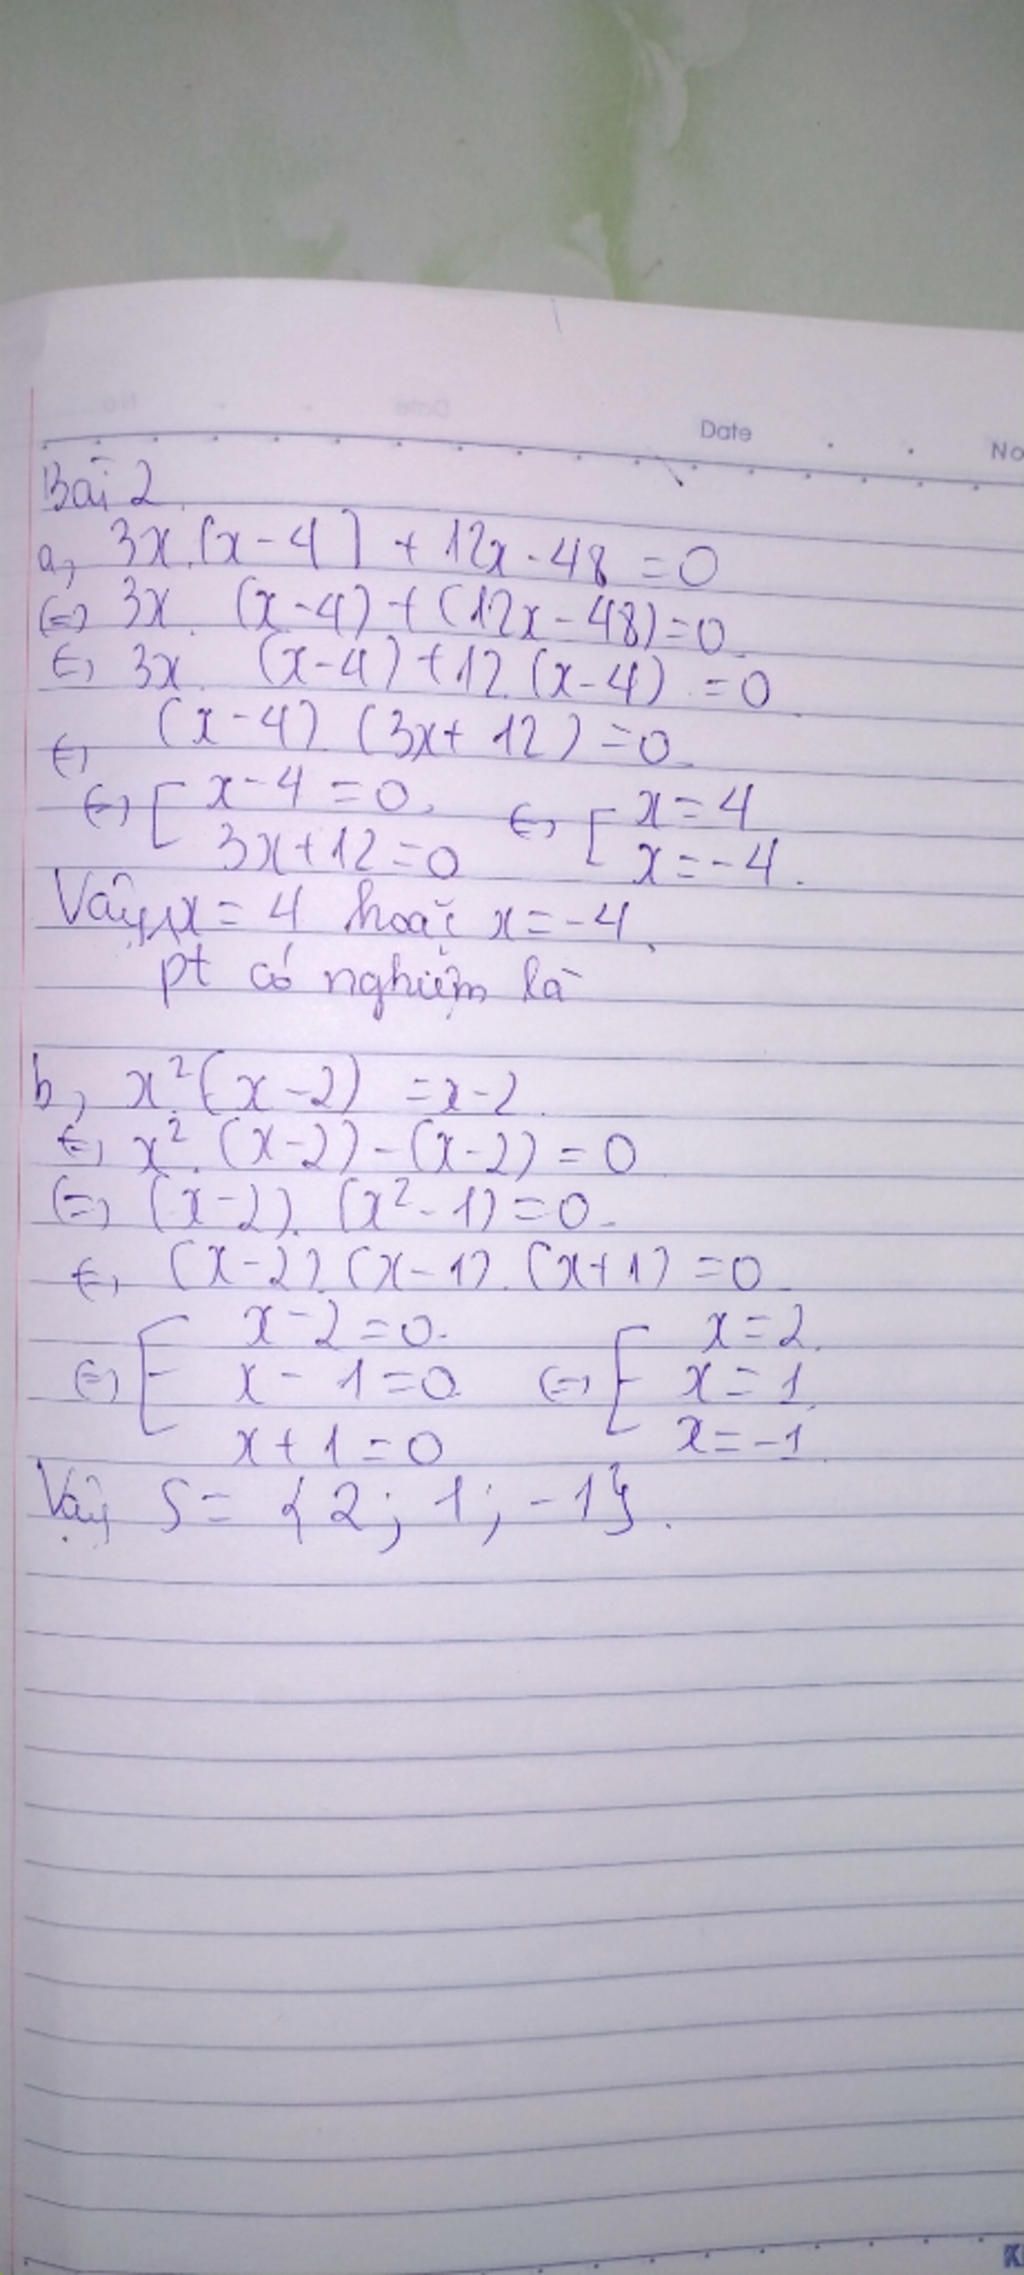 Date No
Bài 2
a, 3x.(x-4) + 12x-48 = 0
(=) 3x. (x-4)+(12x-48)=0
(=) 3x. (x-4)+12.(x-4) = 0
(=) (x-4).(3x+12)=0
(=) [ x-4=0 (=) [ x=4
3x+12=0 x=-4.
Vậy x=4 hoặc x=-4
pt có nghiệm là
b, x²(x-2) = x-2
(=) x².(x-2)-(x-2)=0
(=) (x-2).(x²-1)=0
(=) (x-2).(x-1).(x+1)=0
x-2=0 x=2
(=) [ x-1=0 (=) [ x=1
x+1=0 x=-1
Vậy S= {2; 1; -1}.